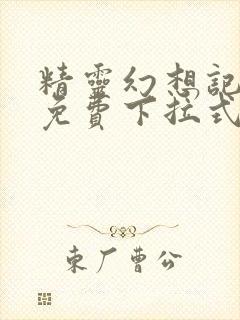 精靈幻想記
免費下拉式
东厂曹公